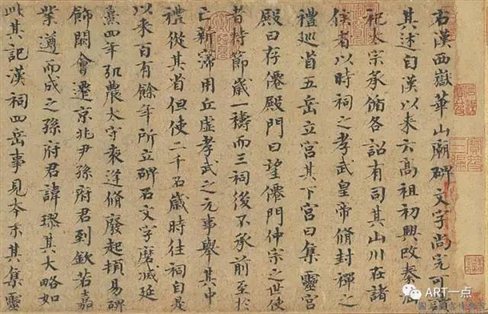 右漢西嶽華山廟碑文字尚完可
其述自漢以來云高祖初興改秦
祀太宗承循各詔有司其山川在諸
侯者以時祠之孝武皇帝脩封禪之
禮巡省五岳立宮其下宮曰集靈宮
殿曰存僊殿門曰望僊門仲宗之世使
者持節歲一禱而三祠後不承前至於
亡新寖用丘虛孝武之元事舉其中
禮從其省但使二千石歲時往祠自是
以來百有餘年所立碑石文字磨滅延
熹四年弘農太守袁逢脩廢起頓易碑
飾闕會遷京兆尹孫府君到欽若嘉
業遵而成之孫府君諱璆其大略如
此其記漢祠四岳事見本末其集靈
ART一点